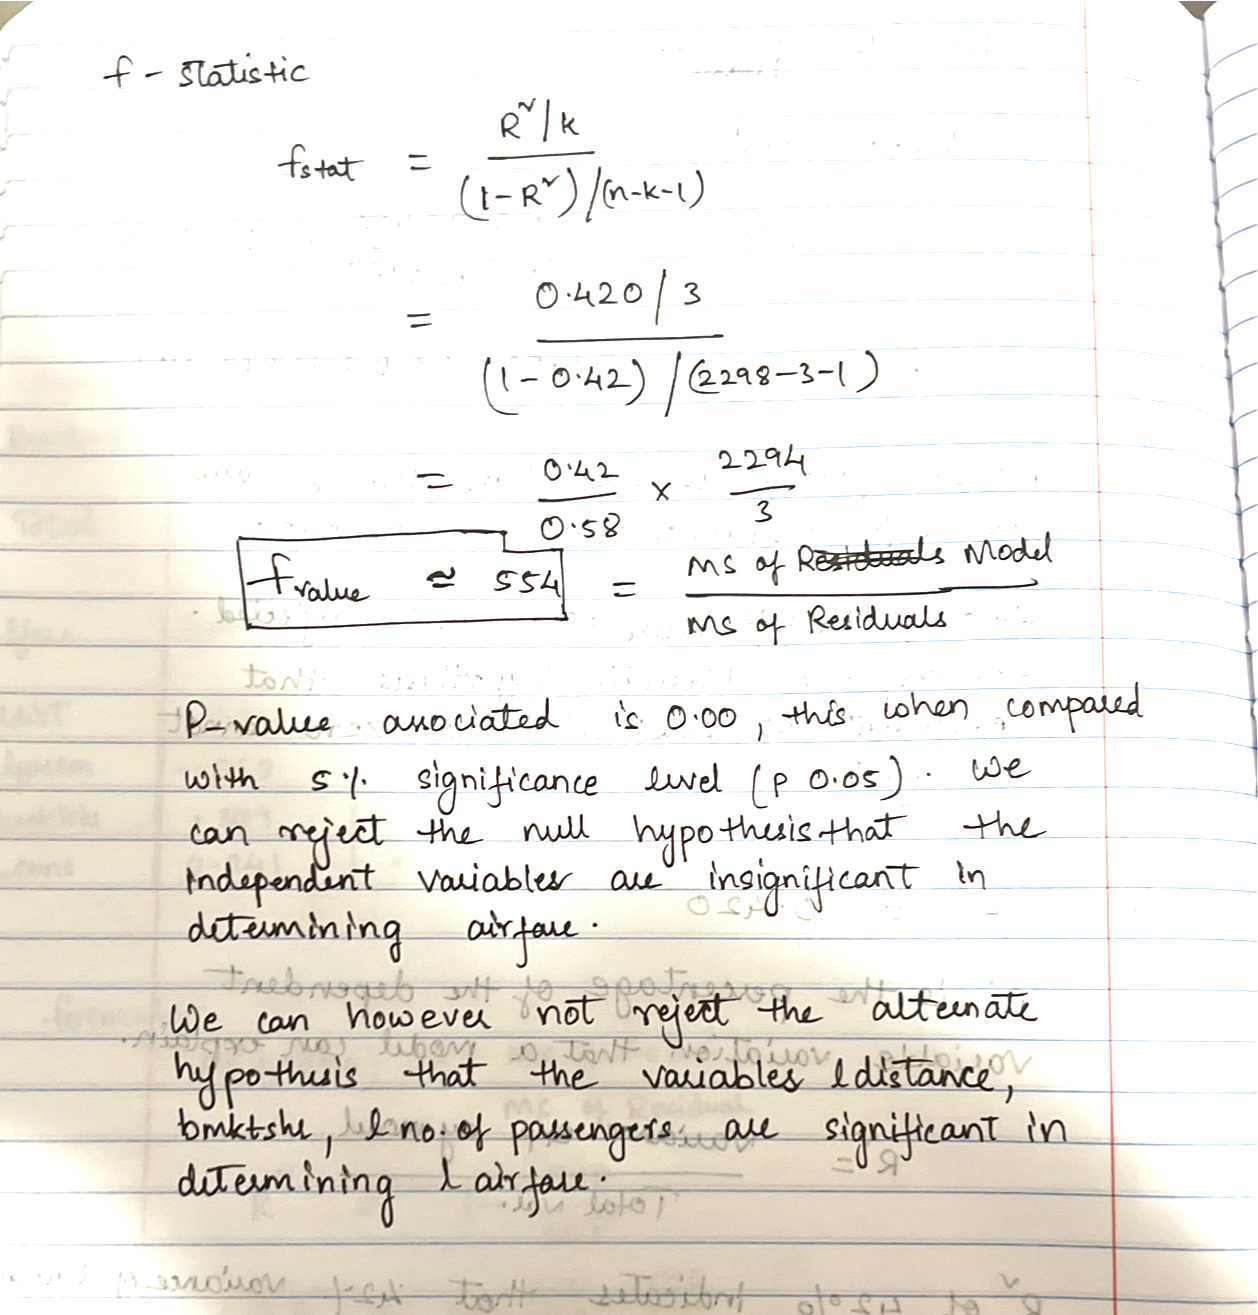 f - statistic
fstat = R²/k / (1-R²)/(n-k-1)
= 0.420/3 / (1-0.42)/(2298-3-1)
= 0.42/0.58 × 2294/3
fvalue ≈ 554 = MS of Residuals Model / MS of Residuals
P-value associated is 0.00, this when compared
with 5% significance level (p 0.05). We
can reject the null hypothesis that the
independent variables are insignificant in
determining airfare.
We can however not reject the alternate
hypothesis that the variables ldistance,
bmktshr, l no. of passengers are significant in
determining l airfare.